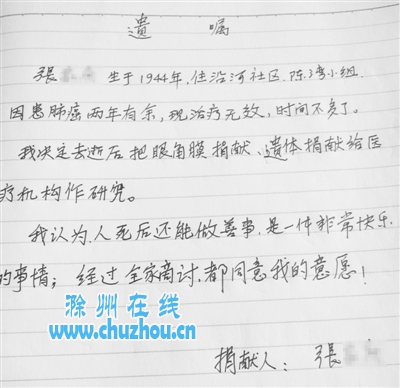 遗 嘱
張 生于1944年,住沿河社区,陈湾小组,
因患肺癌两年有余,现治疗无效,时间不多了。
我决定去逝后把眼角膜捐献、遗体捐献给医
疗机构作研究。
我认为,人死后还能做善事,是一件非常快乐
的事情;经过全家商讨,都同意我的意愿!
滁州在线
www.chuzhou.cn
捐献人:張